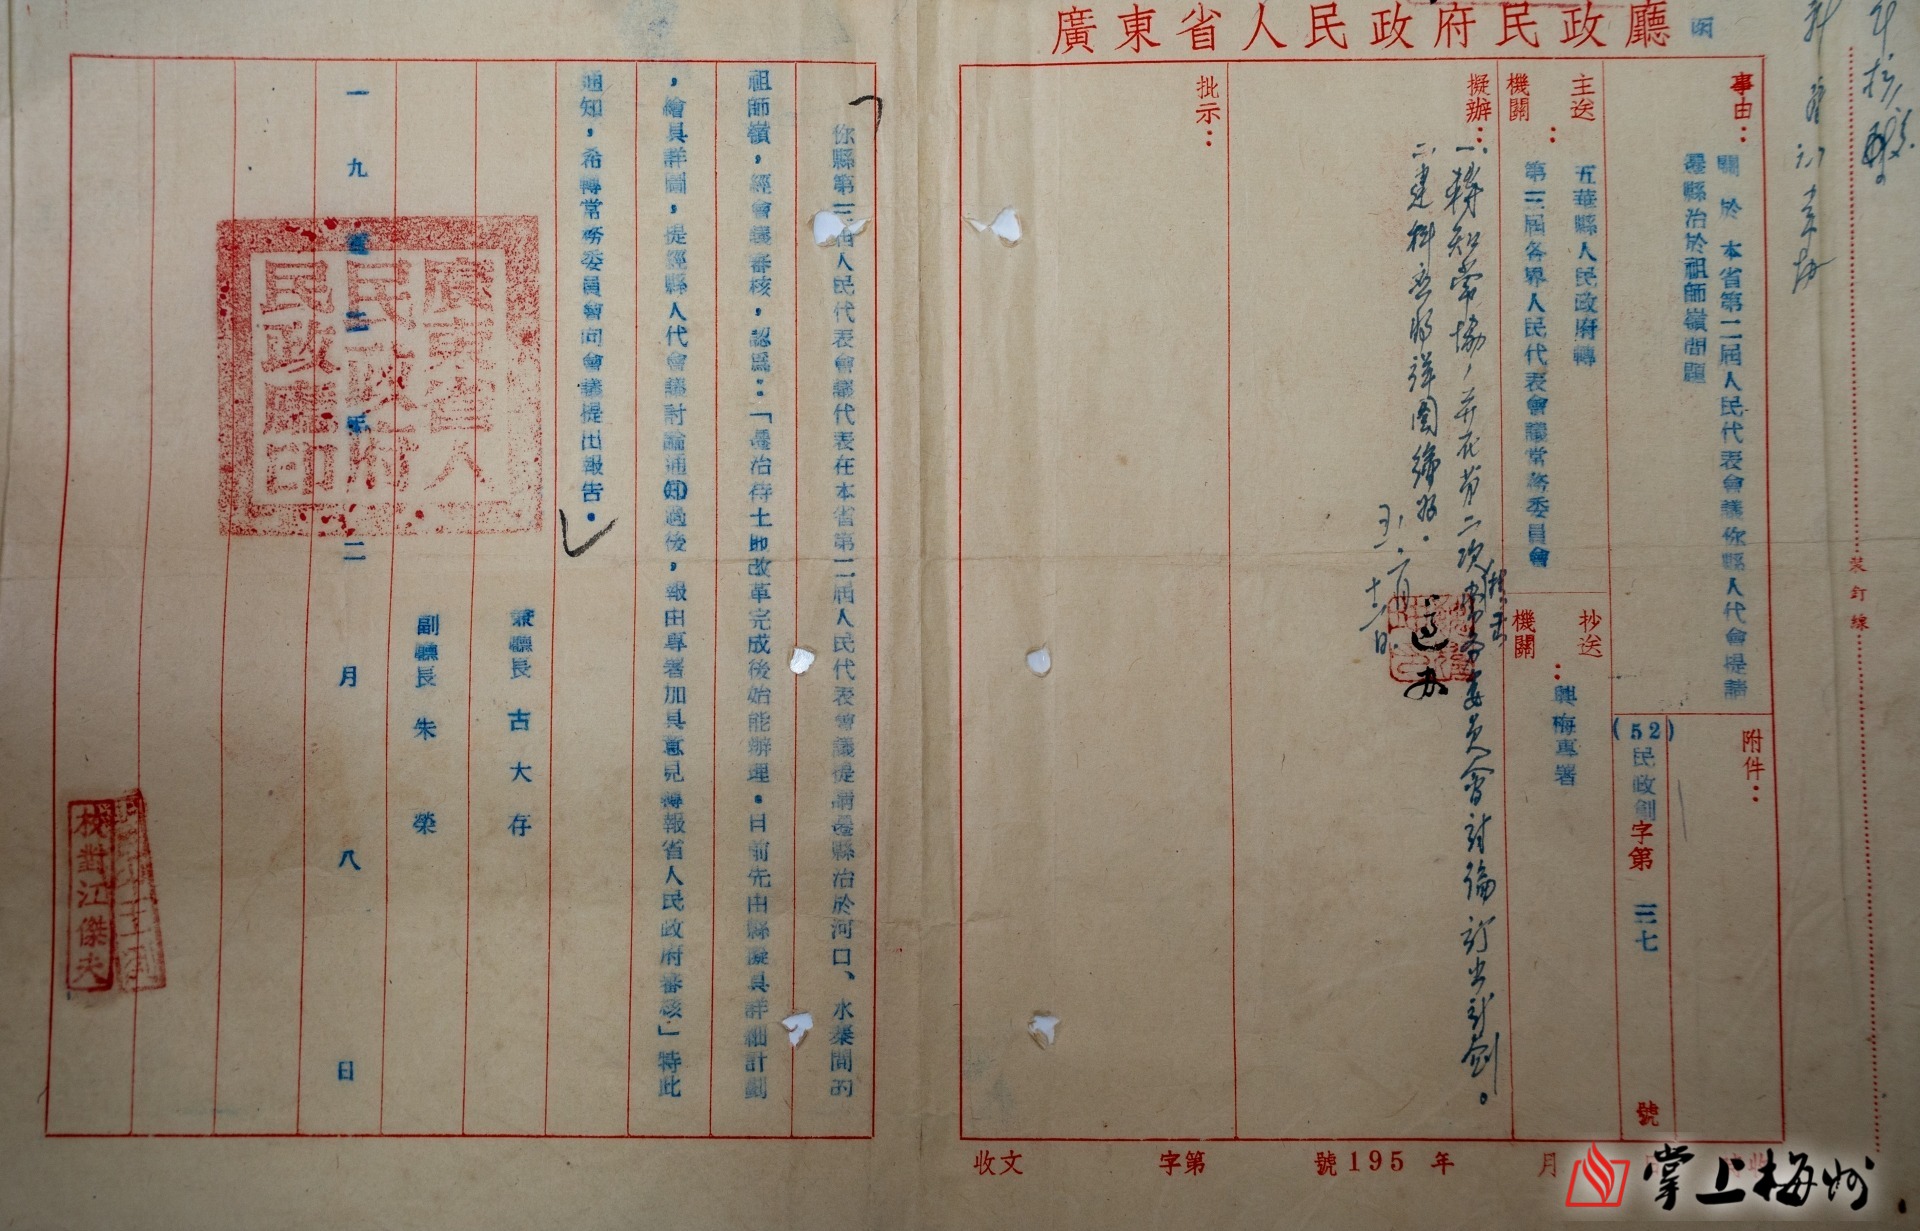 廣東省人民政府民政廳
函
事由：
關於本省第二屆人民代表會議你縣人代會提請
遷縣治於祖師嶺問題
附件：
(52)民政劃字第三七號
主送機關：
五華縣人民政府轉
第三屆各界人民代表會議常務委員會
抄送機關：
興梅專署
擬辦：
一、轉知常協，并在第二次常务委员会討論訂出計劃。
二、建科意見將详图繪好。
批示：
收文 字第 號 195 年 月
裝訂線
你縣第三屆人民代表會議代表在本省第二屆人民代表會議提請遷縣治於河口、水寨間的
祖師嶺，經會議審核，認爲：「遷治待土地改革完成後始能辦理。目前先由縣擬具詳細計劃
，繪具詳圖，提經縣人代會議討論通知過後，報由專署加具意見轉報省人民政府審核」特此
通知，希轉常務委員會向會議提出報告。
兼廳長 古大存
副廳長 朱榮
一九五二年二月八日
廣東省人民政府民政廳印
校對江傑夫
掌上梅州